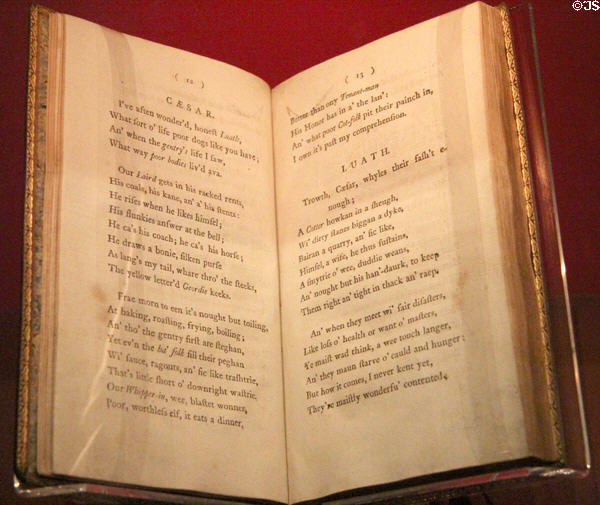 ©JS
( 12 )
CÆSAR.
I've aften wonder'd, honeſt Luath,
What ſort o' life poor dogs like you have;
An' when the gentry's life I ſaw,
What way poor bodies liv'd ava.
Our Laird gets in his racked rents,
His coals, his kane, an' a' his ſtents:
He riſes when he likes himſel;
His flunkies anſwer at the bell;
He ca's his coach; he ca's his horſe;
He draws a bonie, ſilken purſe
As lang's my tail, whare thro' the ſteeks,
The yellow letter'd Geordie keeks.
Frae morn to een it's nought but toiling,
At baking, roaſting, frying, boiling;
An' tho' the gentry firſt are ſteghan,
Yet ev'n the ha' folk fill their peghan
Wi' ſauce, ragouts, an' ſic like traſhtrie,
That's little ſhort o' downright waſtrie.
Our Whipper-in, wee, blaſtet wonner,
Poor, worthleſs elf, it eats a dinner,
( 13 )
Better than ony Tenant-man
His Honor has in a' the lan':
An' what poor Cot-folk pit their painch in,
I own it's paſt my comprehenſion.
LUATH.
Trowth, Cæſar, whyles their faſh't e-
nough;
A Cotter howkan in a ſheugh,
Wi' dirty ſtanes biggan a dyke,
Bairan a quarry, an' ſic like,
Himſel, a wife, he thus ſuſtains,
A ſmytrie o' wee, duddie weans,
An' nought but his han'-daurk, to keep
Them right an' tight in thack an' raep.
An' when they meet wi' ſair diſaſters,
Like loſs o' health or want o' maſters,
Ye maiſt wad think, a wee touch langer,
An' they maun ſtarve o' cauld and hunger:
But how it comes, I never kent yet,
They're maiſtly wonderfu' contented;